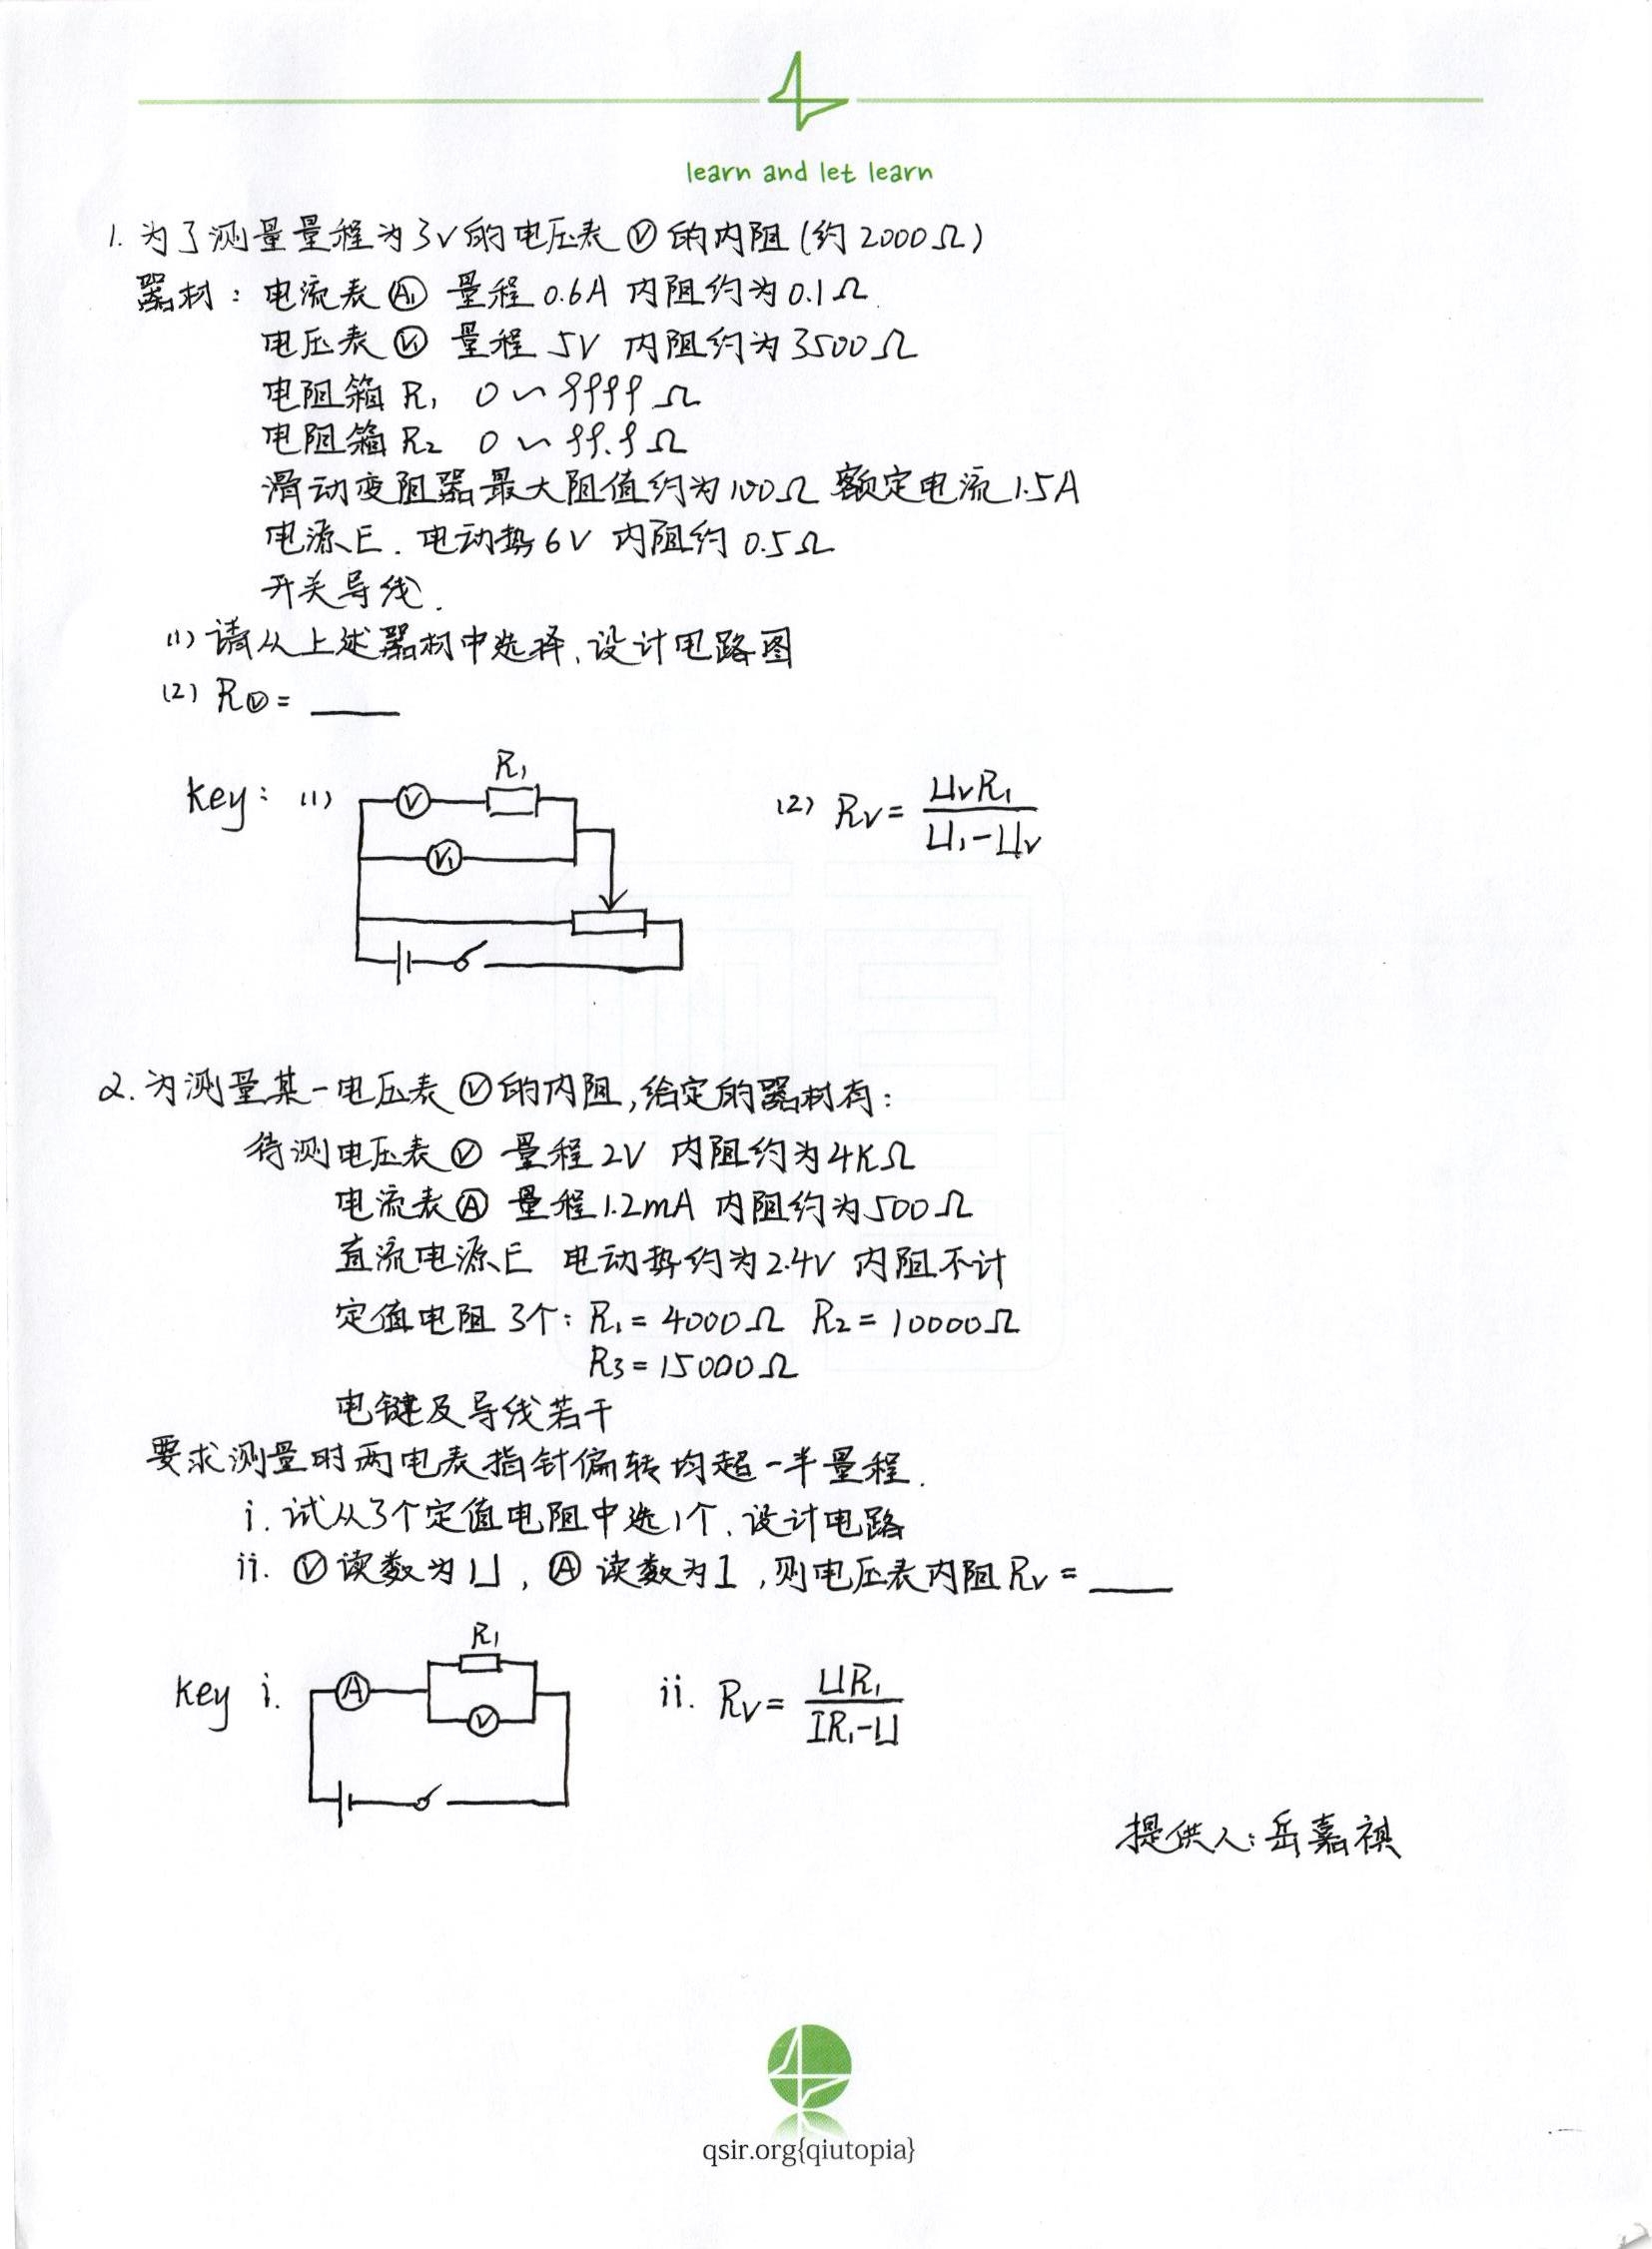 learn and let learn
1. 为了测量量程为3V的电压表Ⓥ的内阻(约2000Ω)
器材: 电流表(A₁) 量程0.6A 内阻约为0.1Ω
电压表(V₁) 量程 5V 内阻约为3500Ω
电阻箱 R₁ 0~9999Ω
电阻箱 R₂ 0~99.9Ω
滑动变阻器最大阻值约为100Ω 额定电流1.5A
电源E. 电动势6V 内阻约0.5Ω
开关导线.
(1) 请从上述器材中选择,设计电路图
(2) RⓋ= ____
key: (1)
R₁
V
V₁
(2) Rv= UvR₁/(U₁-Uv)
2. 为测量某一电压表Ⓥ的内阻,给定的器材有:
待测电压表Ⓥ 量程2V 内阻约为4KΩ
电流表Ⓐ 量程1.2mA 内阻约为500Ω
直流电源E 电动势约为2.4V 内阻不计
定值电阻3个: R₁=4000Ω R₂=10000Ω
R₃=15000Ω
电键及导线若干
要求测量时两电表指针偏转均超一半量程.
i. 试从3个定值电阻中选1个,设计电路
ii. Ⓥ读数为U, Ⓐ读数为I,则电压表内阻Rv= ____
key i.
R₁
A
V
ii. Rv= UR₁/(IR₁-U)
提供人:岳嘉祺
qsir.org{qiutopia}